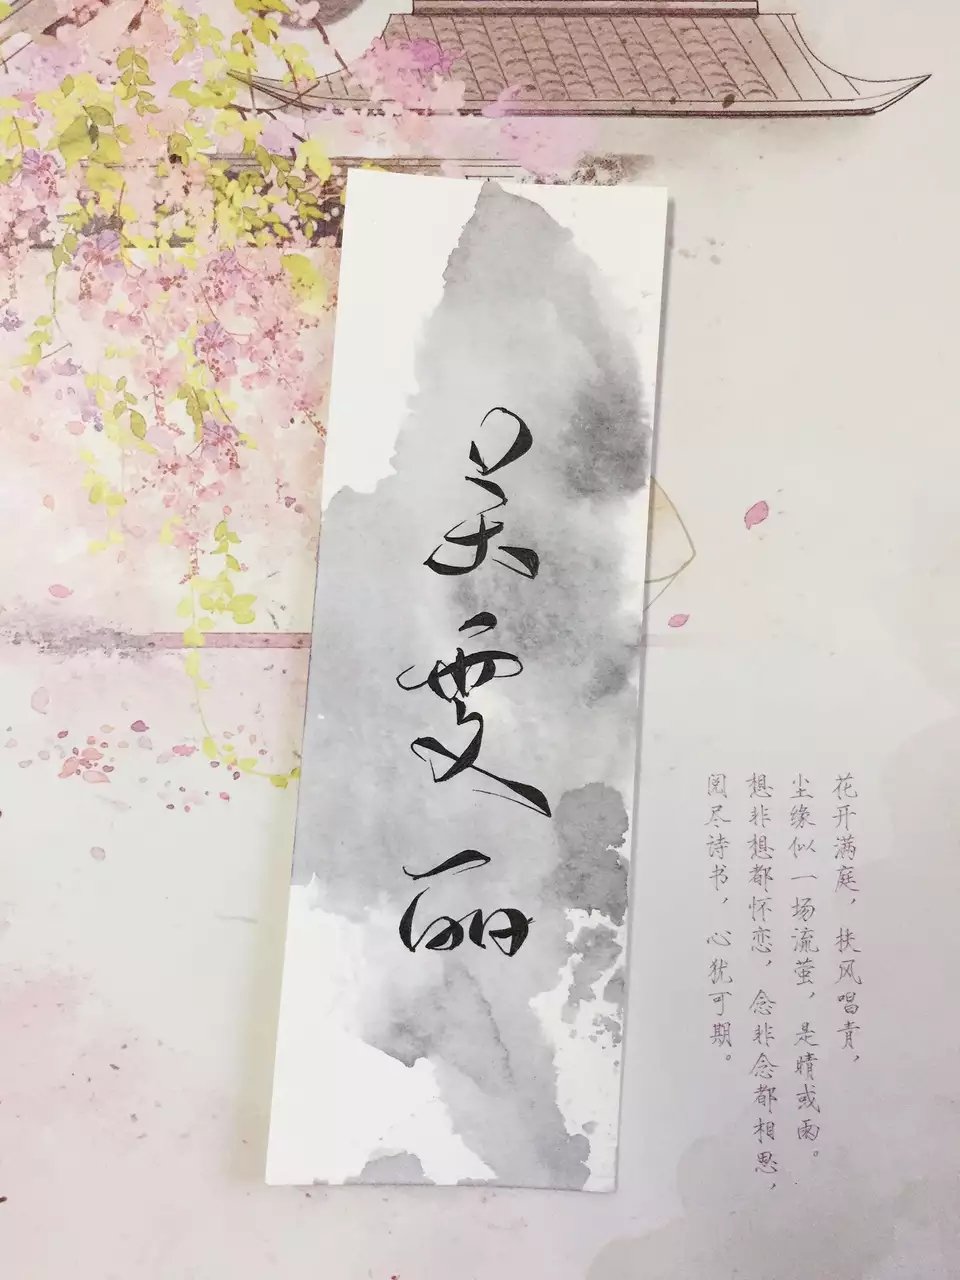 吴雯丽
花开满庭，扶风唱青，
尘缘似一场流萤，是晴或雨。
想非想都怀恋，念非念都相思，
阅尽诗书，心犹可期。